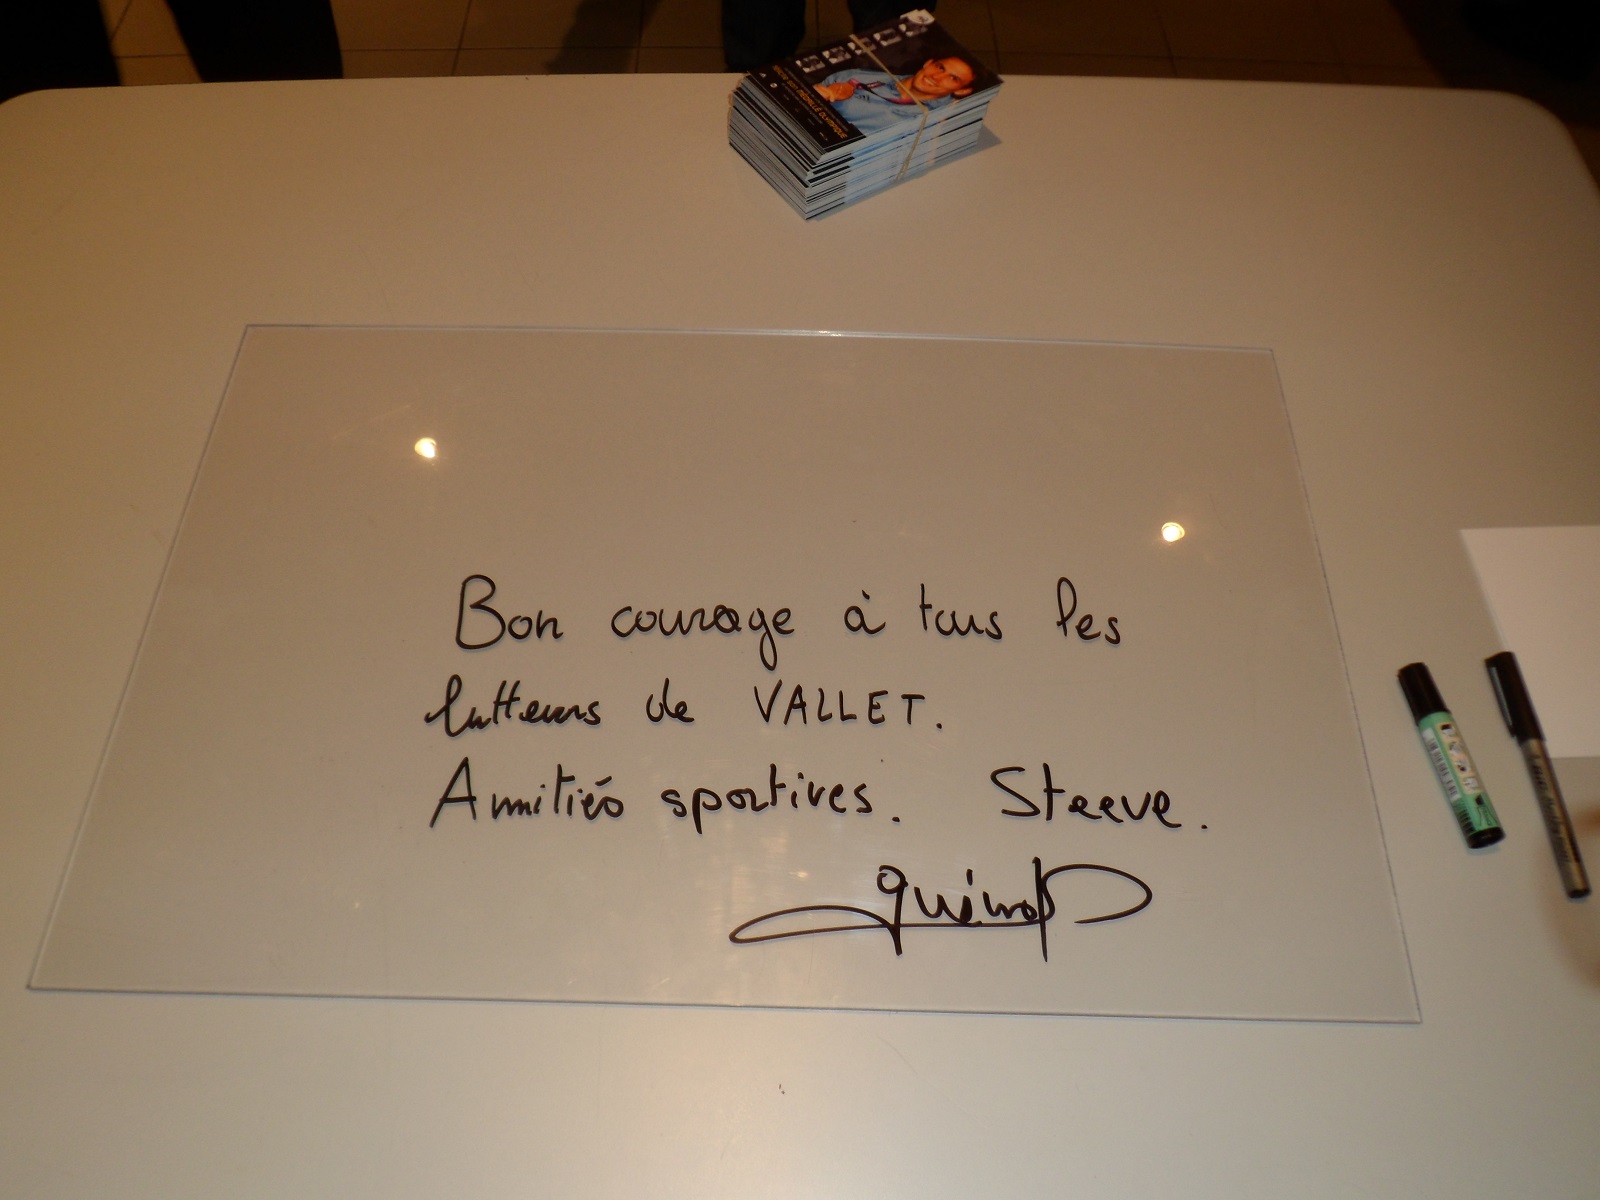 MÉDAILLE OLYMPIQUE
Bon courage à tous les
lutteurs de VALLET.
Amitiés sportives. Steeve.
Guénot